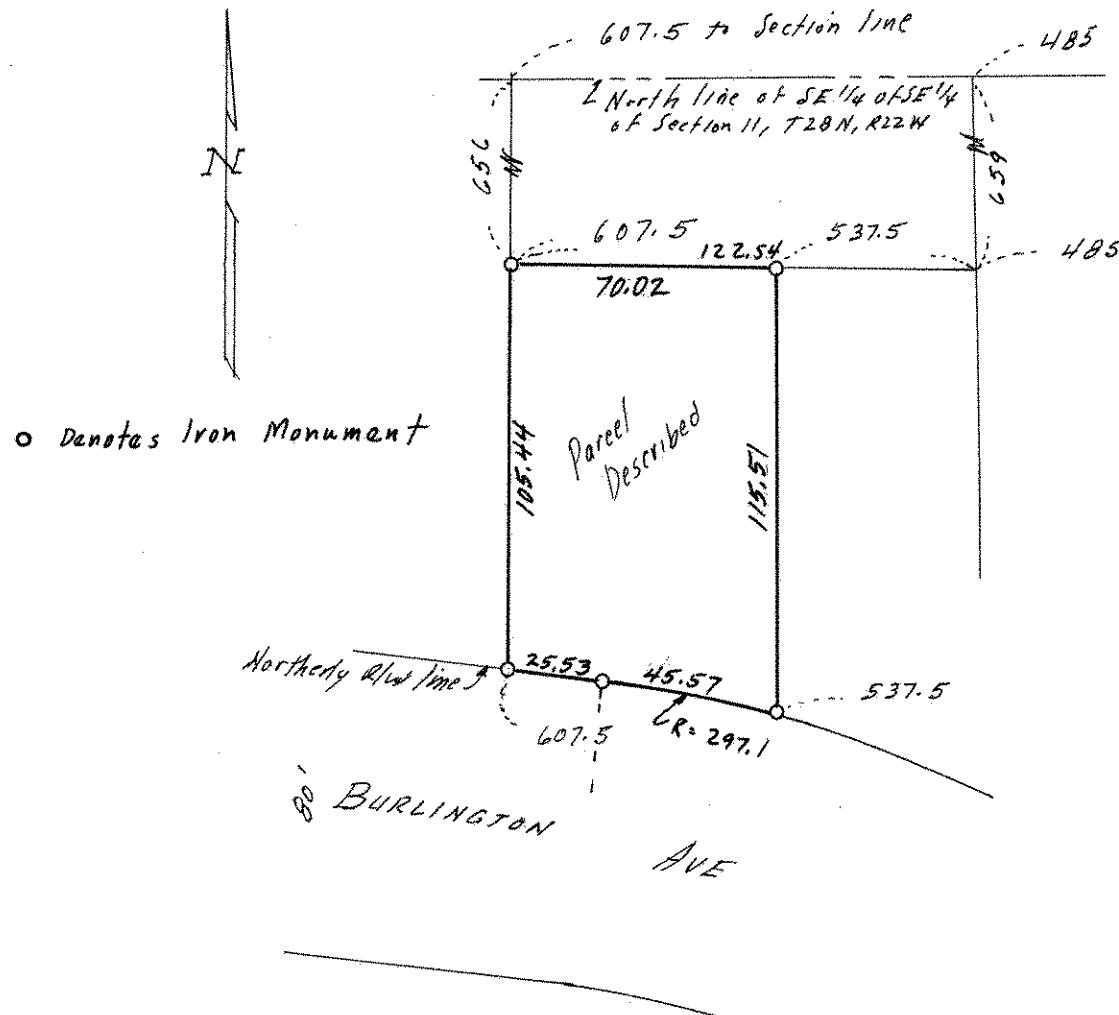 607.5 to Section line
485
North line of SE 1/4 of SE 1/4
of Section 11, T28N, R22W
N
656
659
607.5
122.54
537.5
485
70.02
o Denotes Iron Monument
Parcel
Described
105.44
115.51
Northerly R/W line
25.53
45.57
537.5
607.5
R= 297.1
80'
BURLINGTON
AVE